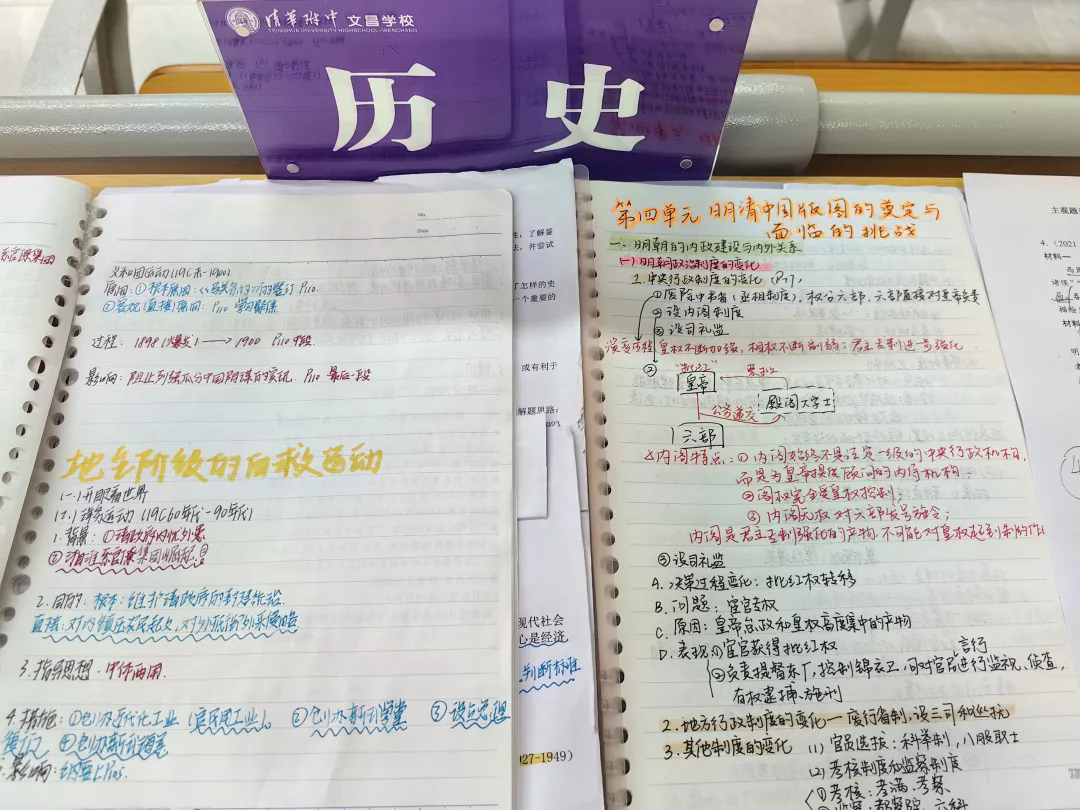 清华附中 文昌学校
TSINGHUA UNIVERSITY HIGHSCHOOL-WENCHANG
历史
No.
Date
义和团运动(19C末-1900)
原因:①根本原因:《马关条约》的签订 P110.
过程: 1898(爆发) → 1900 P110 4段
影响:阻止列强瓜分中国阴谋的实现. P110 最后一段
地主阶级的自救运动
(一)开眼看世界
(二)洋务运动(19C60年代-90年代)
1.背景:①清政府内忧外患
2.目的:根本:维护清政府的封建统治
直接:对内镇压农民起义,对外抵御列强侵略
3.指导思想:中体西用.
4.措施:①创办近代化工业(官民用工业)。②创办新式学堂 ③设立总理
衙门 ④创办新式海军
了,了解鉴
法,并尝试
了怎样的史
一个重要的
或有利于
解题思路:
现代社会
心是经济
判断标准
927-1949)
第四单元 明清中国版图的奠定与
面临的挑战
一、明朝的内政建设与内外关系
(一)明朝政治制度的变化
1.中央行政制度的变化(P77)
①废除中书省(丞相制度),权分六部,六部直接对皇帝负责
②设内阁制度
③设司礼监
演变历程 皇权不断加强,相权不断削弱;君主专制进一步强化
②
"批红"
票拟
皇帝
殿阁大学士
公务递交
六部
△内阁特点:①内阁始终不是法定一级的中央行政机构,
而是为皇帝提供顾问的内侍机构.
②阁权完全受皇权控制;
③内阁无权对六部发号施令;
内阁是君主专制强化的产物.不可能对皇权起到制约作用
③设司礼监
A.决策过程变化:批红权转移
B.问题:宦官专权
C.原因:皇帝怠政和皇权高度集中的产物
D.表现 ①宦官获得批红权
②负责提督东厂,控制锦衣卫,可对官员言行进行监视、侦查,
有权逮捕、施刑
2.地方行政制度的变化—废行省制,设三司和巡抚
3.其他制度的变化 (1)官员选拔:科举制,八股取士
(2)考核制度和监察制度
①考核:考满、考察
主观题
4.(2021
材料一
材料